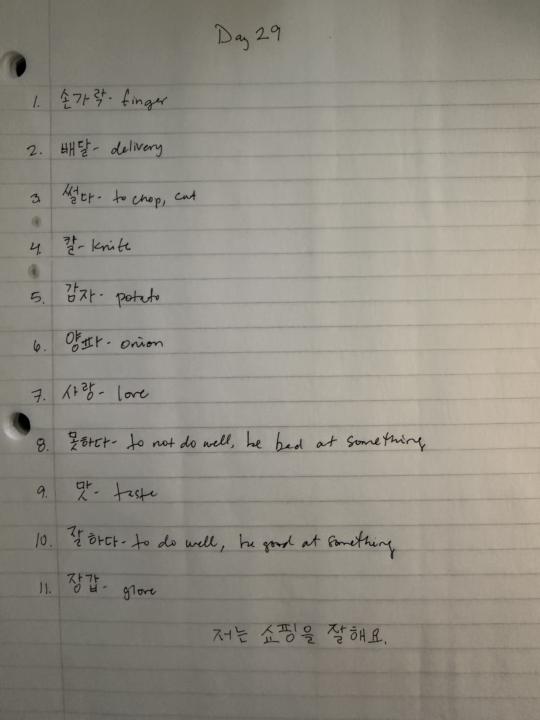 Day 29
1. 손가락- finger
2. 배달- delivery
3. 썰다- to chop, cut
4. 칼- knife
5. 감자- potato
6. 양파- onion
7. 사랑- love
8. 못하다- to not do well, be bad at something
9. 맛- taste
10. 잘하다- to do well, be good at something
11. 장갑- glove
저는 쇼핑을 잘해요.